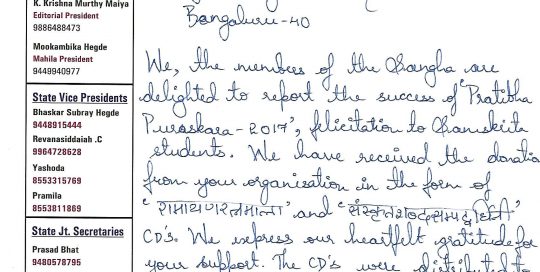 K. Krishna Murthy Maiya
Editorial President
9886488473
Mookambika Hegde
Mahila President
9449940977
State Vice Presidents
Bhaskar Subray Hegde
9448915444
Revanasiddaiah .C
9964728628
Yashoda
8553315769
Pramila
8553811869
State Jt. Secretaries
Prasad Bhat
9480578795
Bengaluru-40
We, the members of the Sangha are
delighted to report the success of 'Pratibha
Puraskara-2017', felicitation to Samskrita
students. We have received the donation
from your organisation in the form of
"रामायणरत्नमाला" and "संस्कृतशब्दसम्पद्वर्धिनी"
CD's. We express our heartfelt gratitude for
your support. The CD's were distributed to